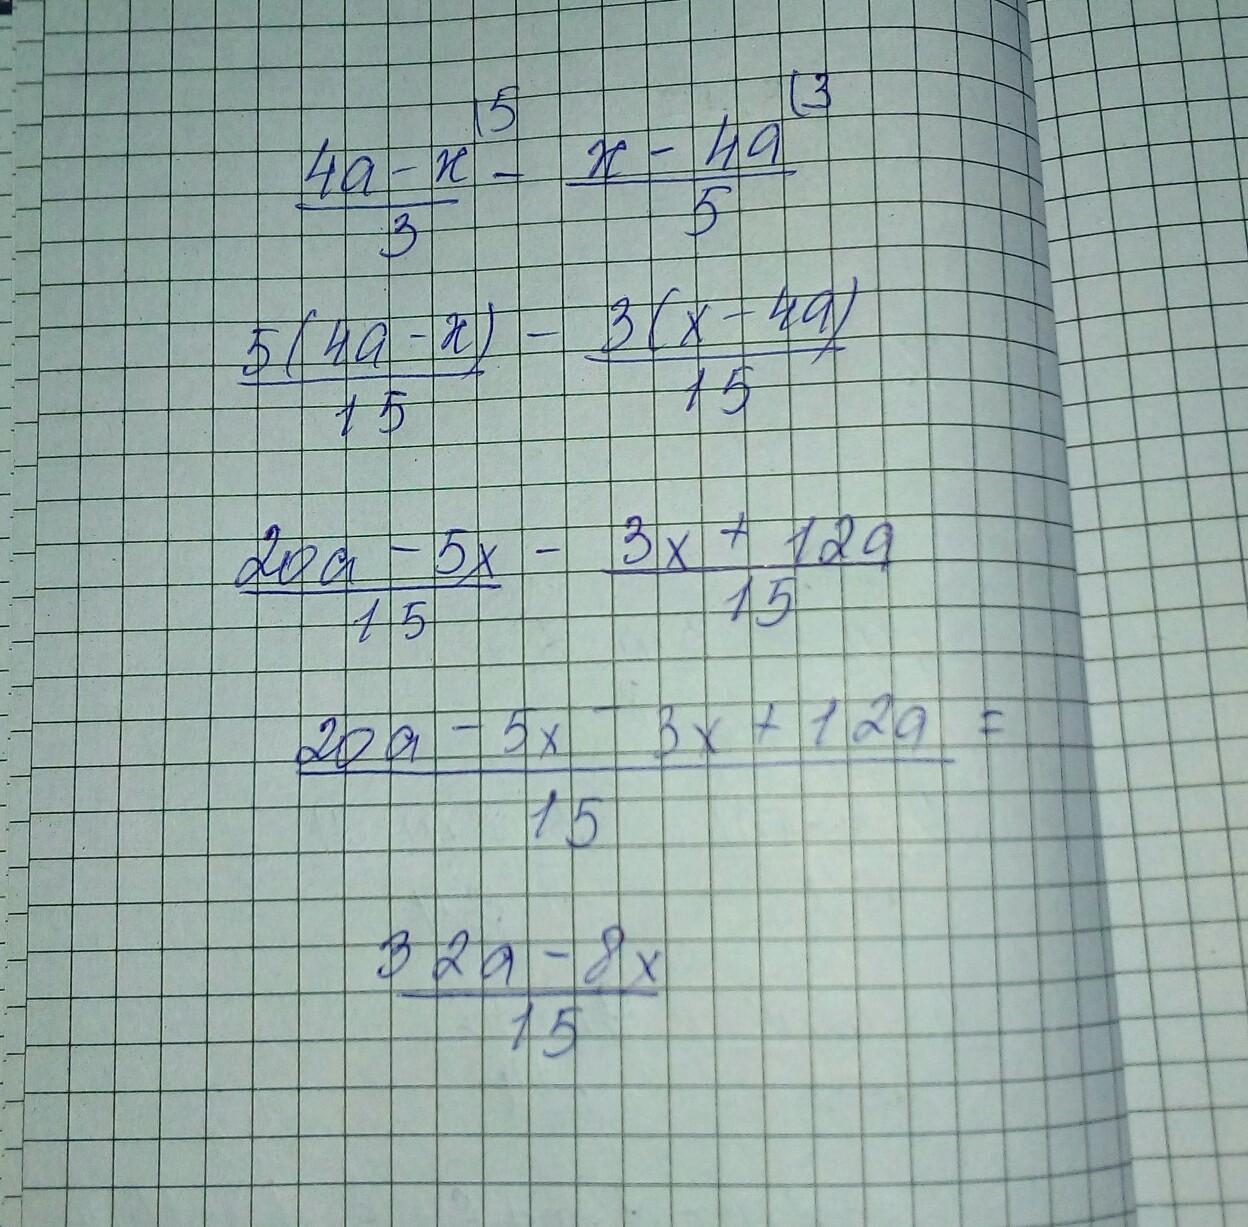 4a - x |5 - x - 4a (3
3 5
5(4a - x) - 3(x - 4a)
15 15
20a - 5x - 3x + 12a
15 15
20a - 5x - 3x + 12a =
15
32a - 8x
15